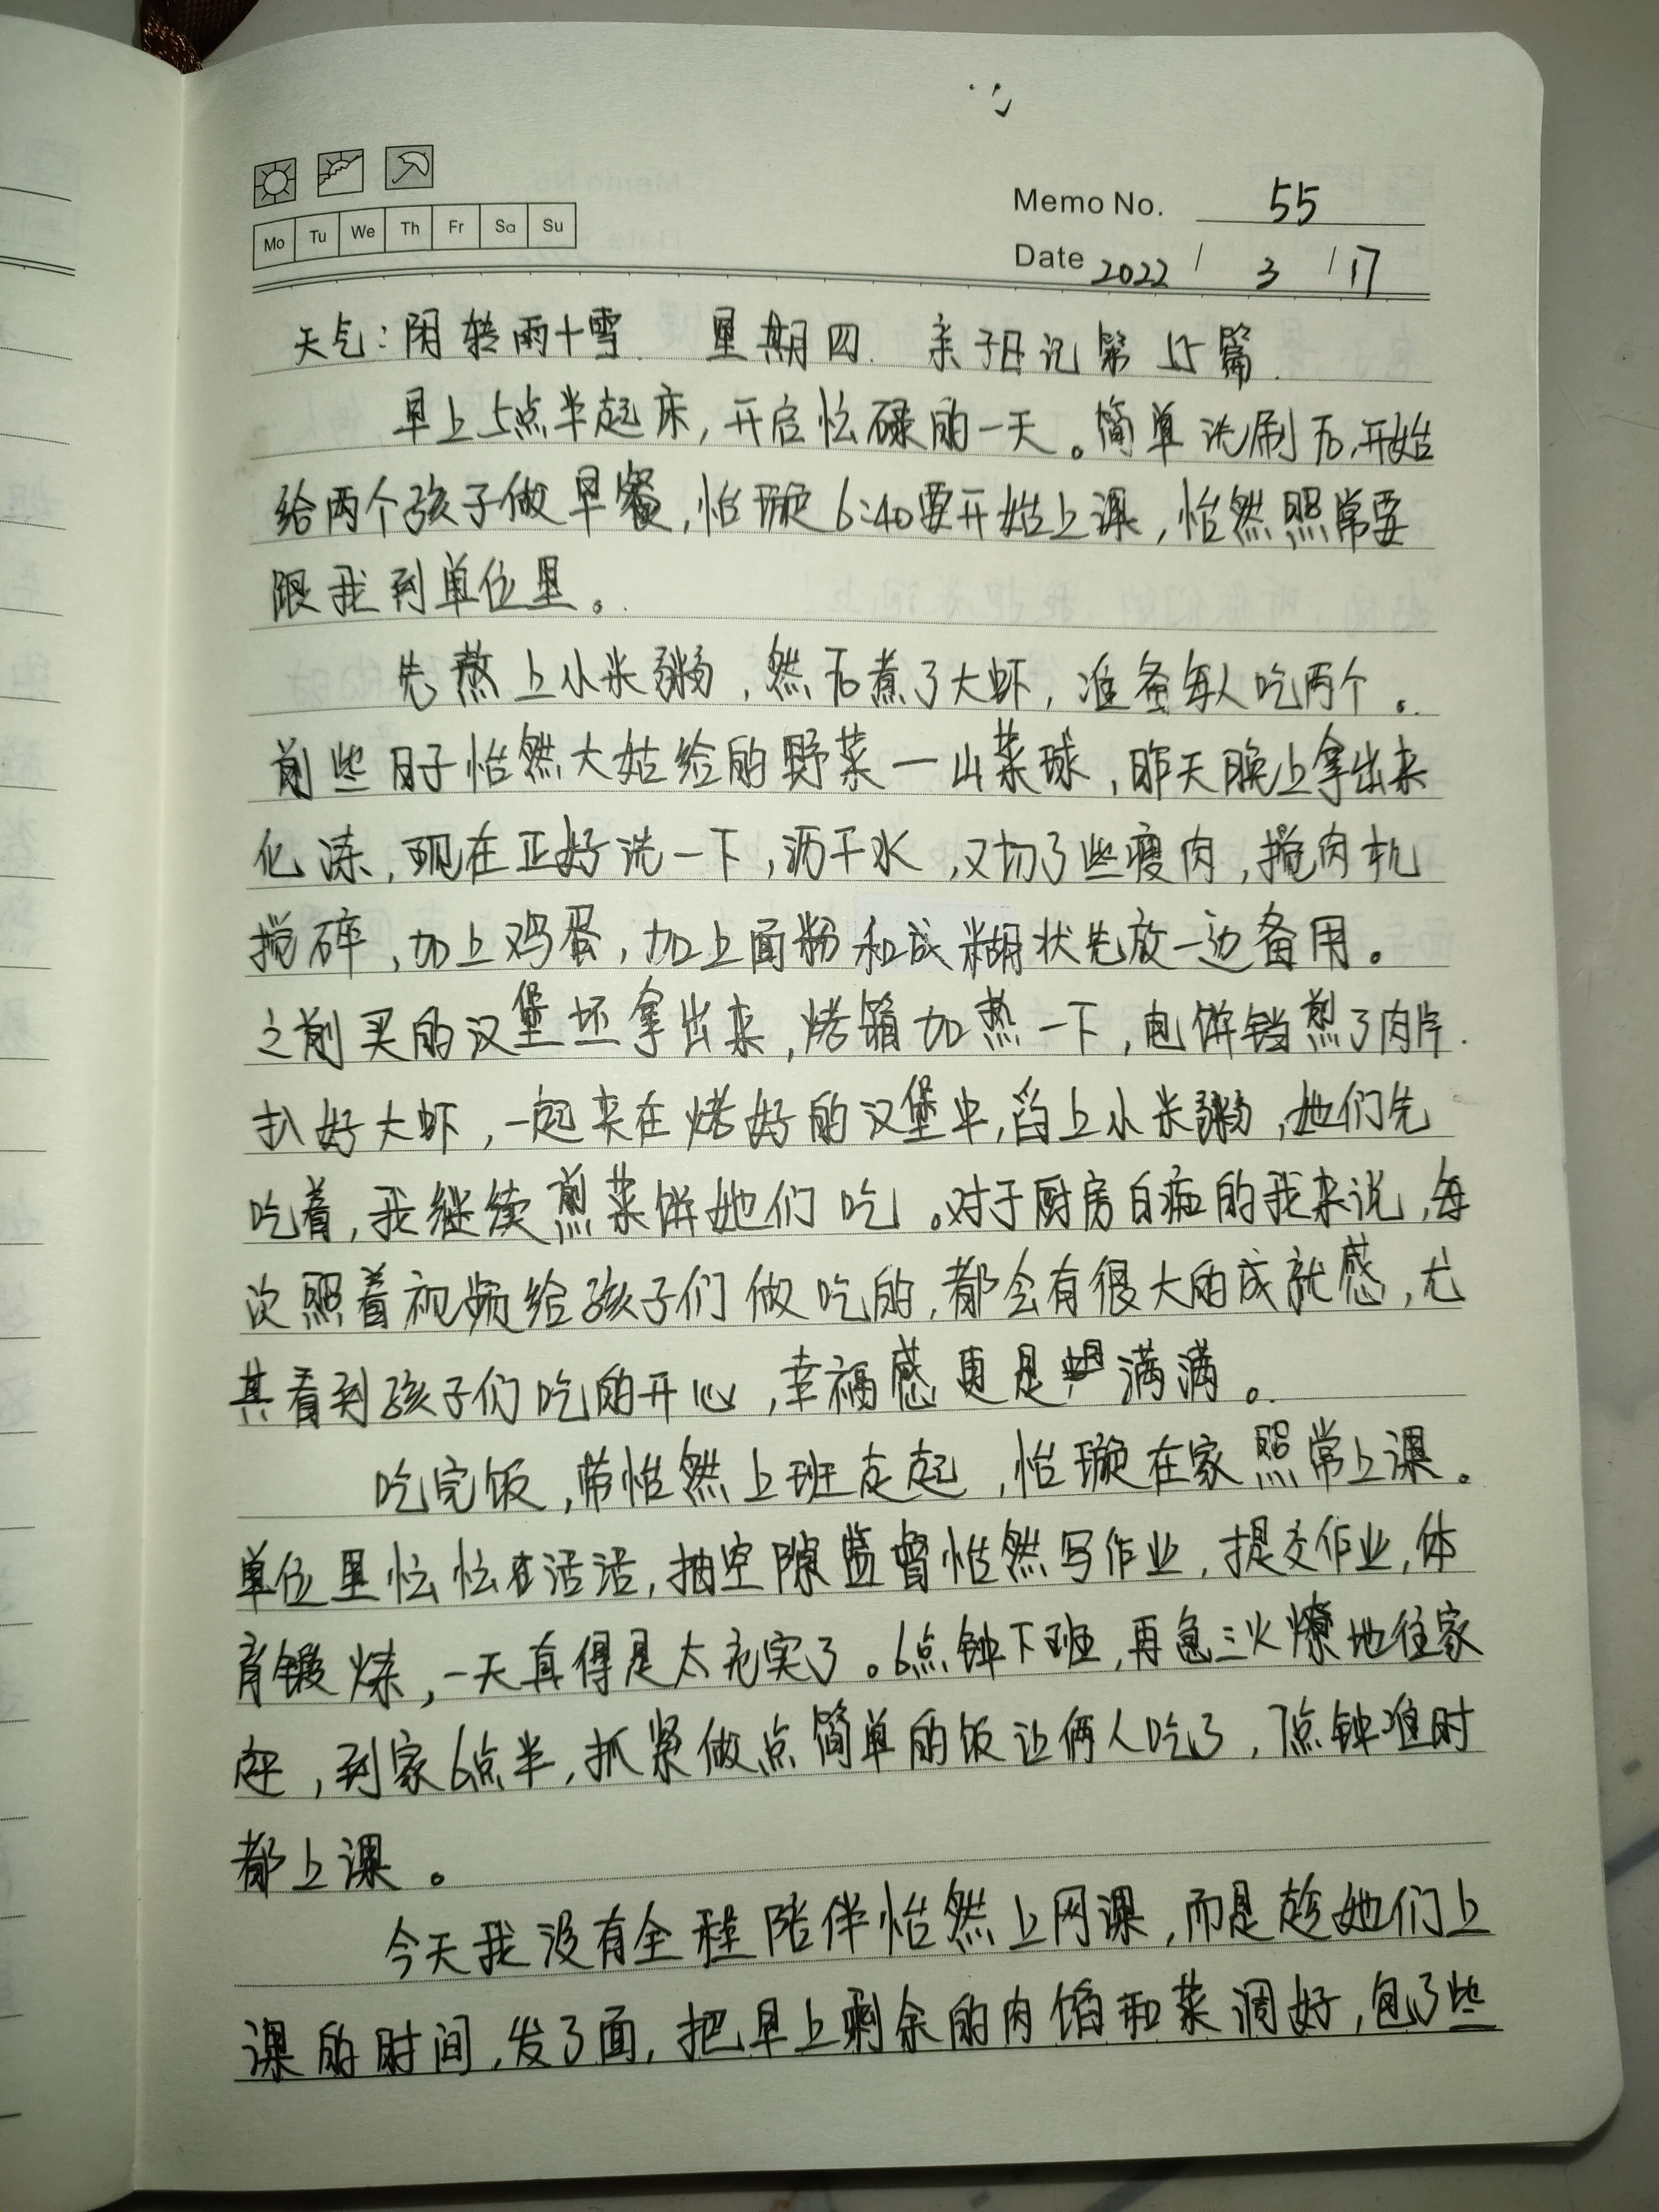 Memo No. 55
Mo Tu We Th Fr Sa Su
Date 2022 / 3 / 17
天气:阴转雨+雪. 星期四. 亲子日记第55篇.
早上5点半起床,开启忙碌的一天。简单洗刷后,开始
给两个孩子做早餐,怡璇6:40要开始上课,怡然照常要
跟我到单位里。
先熬上小米粥,然后煮了大虾,准备每人吃两个。
前些日子怡然大姑给的野菜一山菜球,昨天晚上拿出来
化冻,现在正好洗一下,沥干水,又切了些瘦肉,搅肉机
搅碎,加上鸡蛋,加上面粉和成糊状先放一边备用。
之前买的汉堡坯拿出来,烤箱加热一下,电饼铛煎了肉片.
扒好大虾,一起夹在烤好的汉堡中,舀上小米粥,她们先
吃着,我继续煎菜饼她们吃。对于厨房白痴的我来说,每
次照着视频给孩子们做吃的,都会有很大的成就感,尤
其看到孩子们吃的开心,幸福感更是满满。
吃完饭,带怡然上班走起,怡璇在家照常上课。
单位里忙忙活活,抽空隙监督怡然写作业,提交作业,体
育锻炼,一天真得是太充实了。6点钟下班,再急三火燎地往家
赶,到家6点半,抓紧做点简单的饭让俩人吃了,7点钟准时
都上课。
今天我没有全程陪伴怡然上网课,而是趁她们上
课的时间,发了面,把早上剩余的肉馅和菜调好,包了些